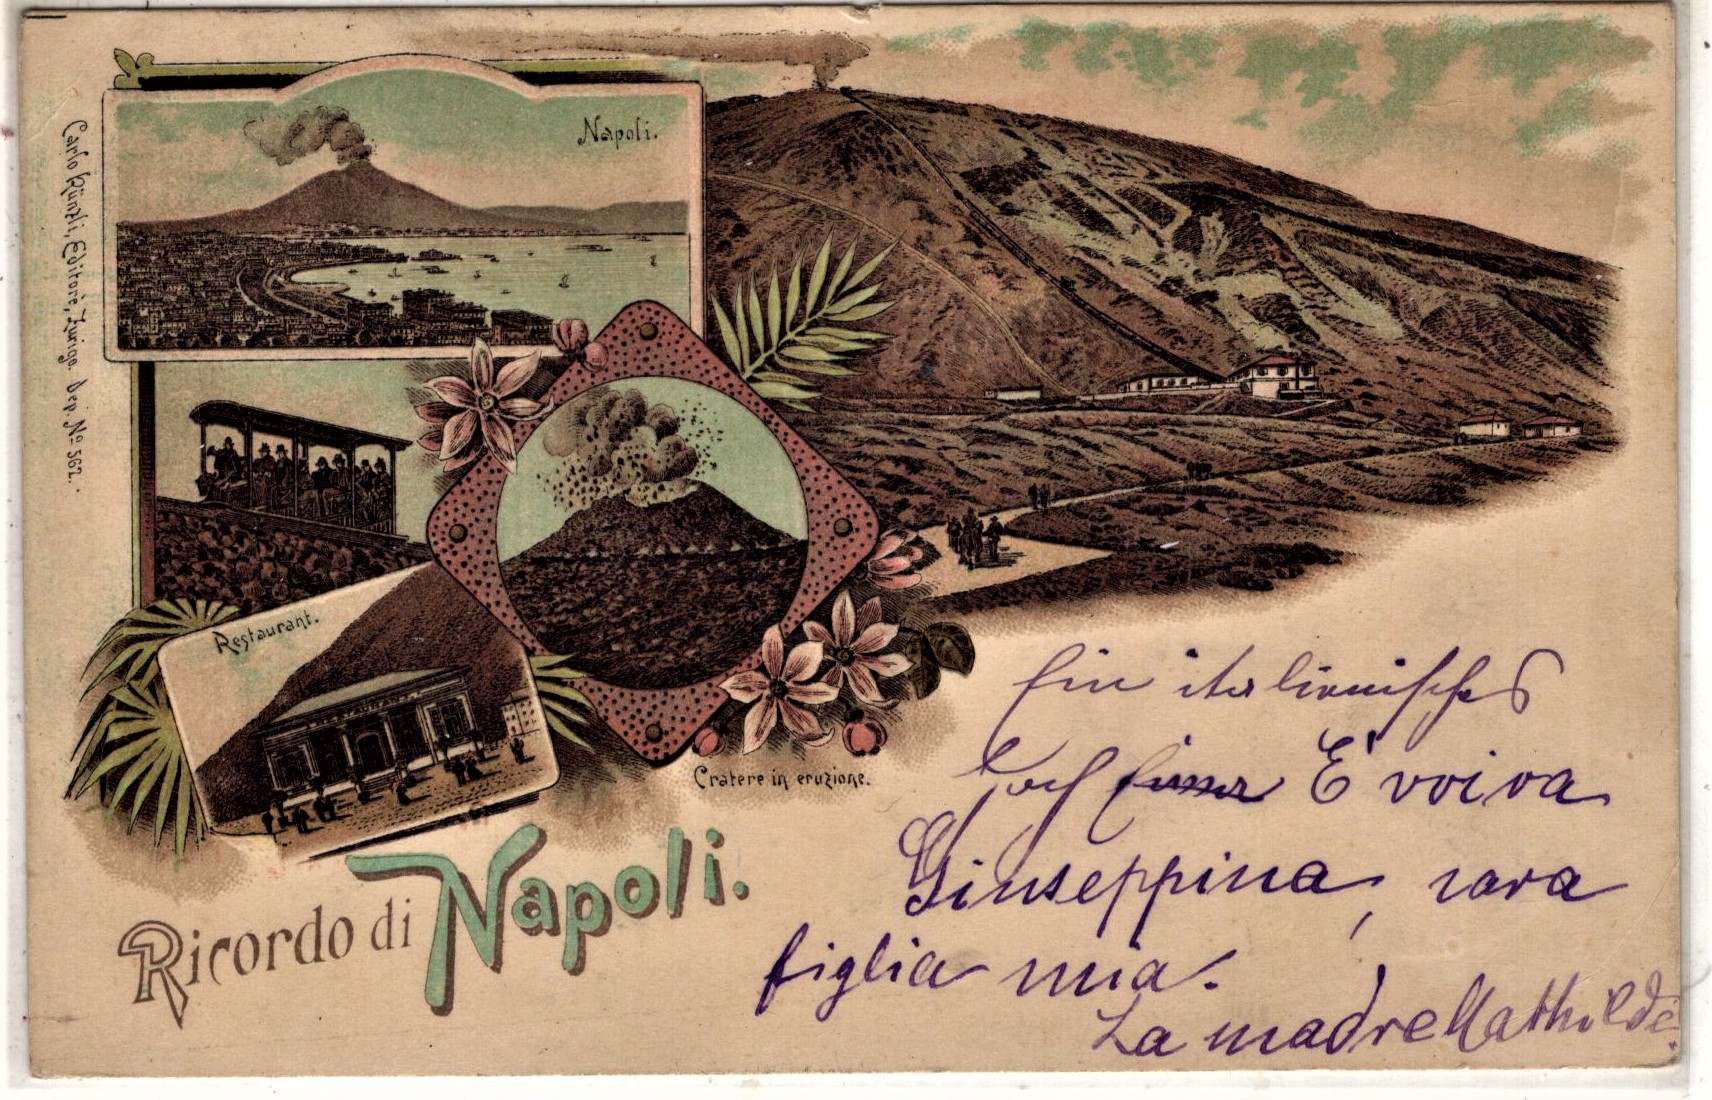 Carlo Künzli, Editore, Zurigo. Dep. No. 562.
Napoli.
Restaurant.
RESTAURANT
Cratere in eruzione.
Ricordo di Napoli.
Ein italienisches
Hoch E'voiva
Giuseppina, cara
figlia mia.
La madre Mathilde.